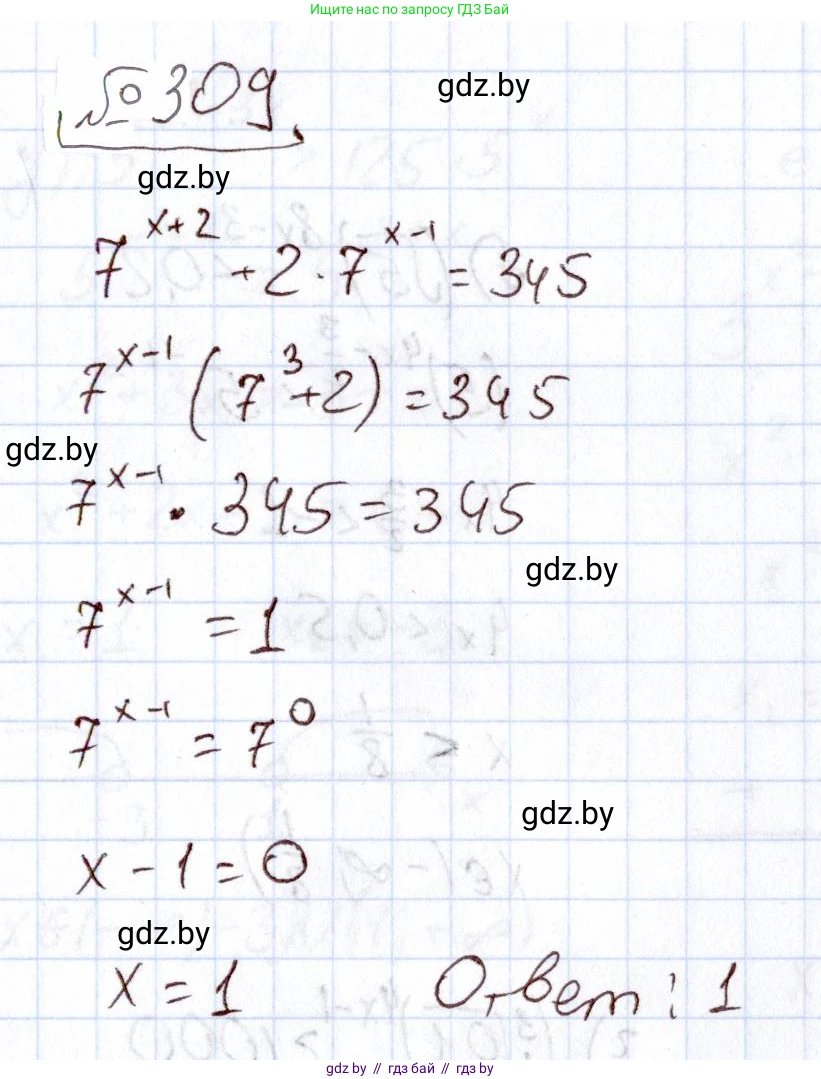 Ищите нас по запросу ГДЗ Бай
№309
gdz.by
gdz.by
7^{x+2} + 2 · 7^{x-1} = 345
7^{x-1} (7^3 + 2) = 345
gdz.by
7^{x-1} · 345 = 345
gdz.by
7^{x-1} = 1
7^{x-1} = 7^0
gdz.by
x - 1 = 0
gdz.by
x = 1 Ответ: 1
gdz.by // гдз бай // гдз by